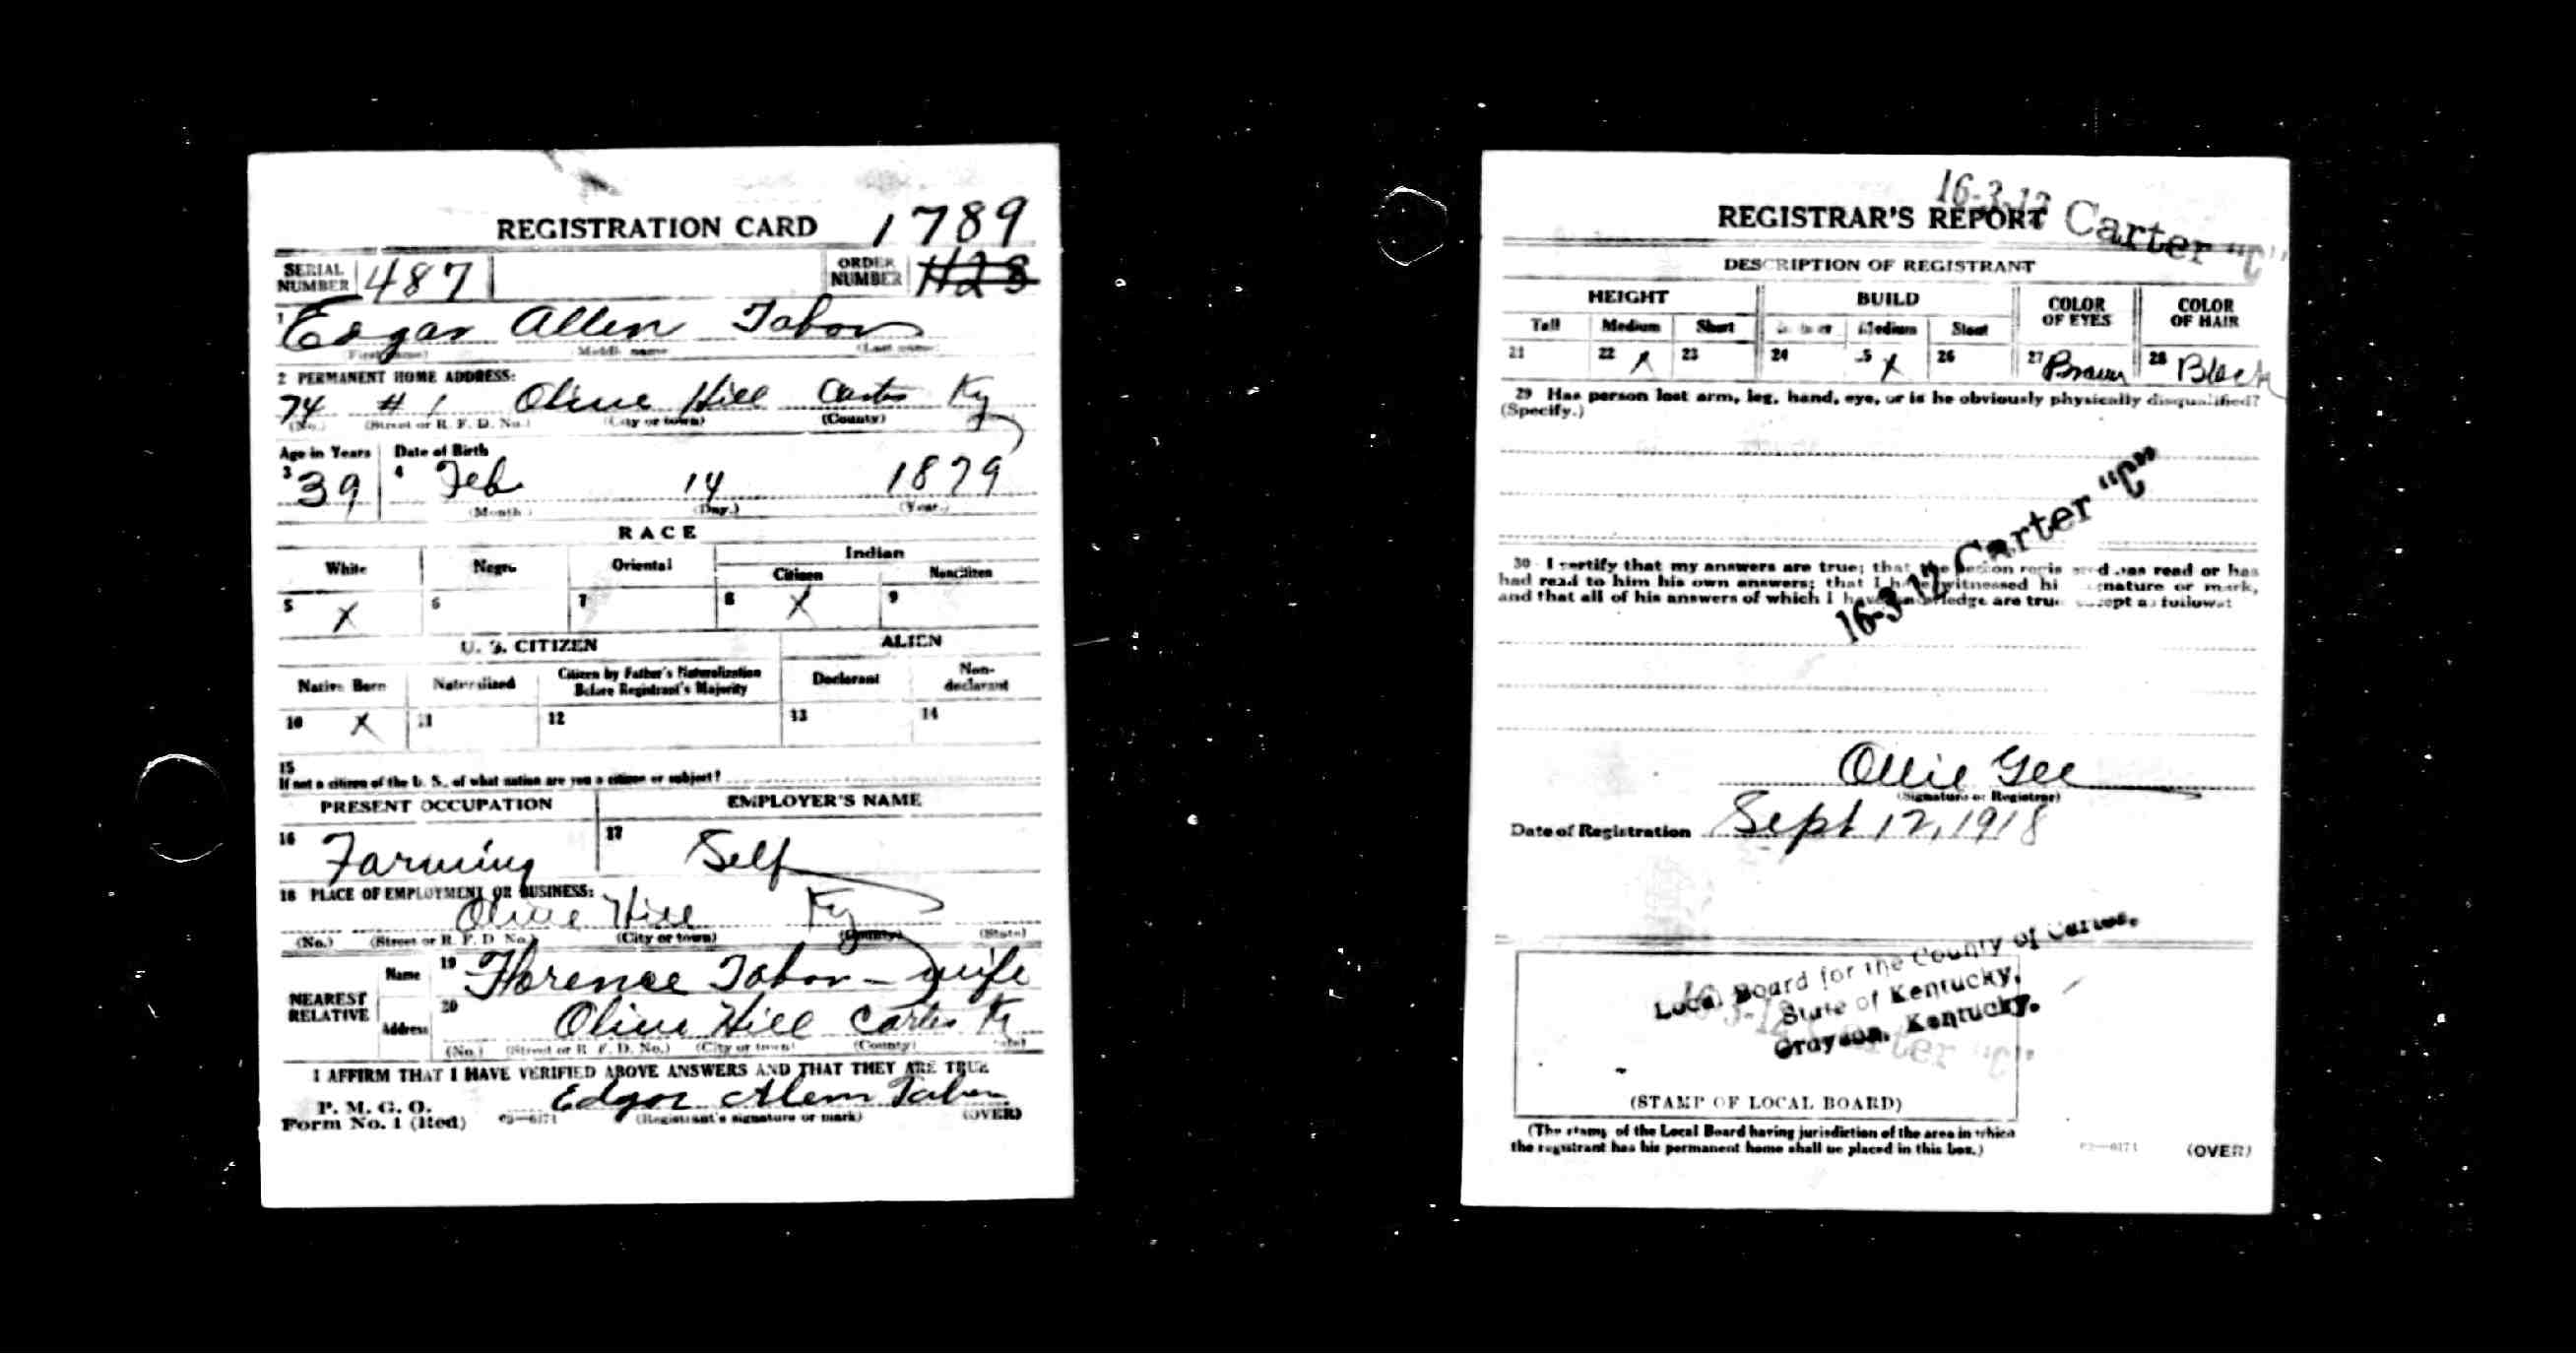 REGISTRATION CARD 1789
SERIAL NUMBER 487 ORDER NUMBER 428
1 Edgar Allen Tabor
(First name) (Middle name) (Last name)
2 PERMANENT HOME ADDRESS:
74 # 1 Olive Hill Carter Ky
(No.) (Street or R. F. D. No.) (City or town) (County)
Age in Years Date of Birth
3 39 4 Feb 14 1879
(Month.) (Day.) (Year.)
RACE
White Negro Oriental Indian
Citizen Noncitizen
5 X 6 7 8 X 9
U. S. CITIZEN ALIEN
Native Born Naturalized Citizen by Father's Naturalization Before Registrant's Majority Declarant Non-declarant
10 X 11 12 13 14
15
If not a citizen of the U. S., of what nation are you a citizen or subject?
PRESENT OCCUPATION EMPLOYER'S NAME
16 Farming 17 Self
18 PLACE OF EMPLOYMENT OR BUSINESS:
Olive Hill Ky
(No.) (Street or R. F. D. No.) (City or town) (County) (State)
NEAREST RELATIVE
Name 19 Florence Tabor - wife
Address 20 Olive Hill Carter Ky
(No.) (Street or R. F. D. No.) (City or town) (County) (State)
I AFFIRM THAT I HAVE VERIFIED ABOVE ANSWERS AND THAT THEY ARE TRUE
P. M. G. O.
Form No. 1 (Red) Edgar Allen Tabor
(Registrant's signature or mark) (OVER)
16-3-12 Carter "C"
REGISTRAR'S REPORT
DESCRIPTION OF REGISTRANT
HEIGHT BUILD COLOR OF EYES COLOR OF HAIR
Tall Medium Short Slender Medium Stout
21 22 X 23 24 25 X 26 27 Brown 28 Black
29 Has person lost arm, leg, hand, eye, or is he obviously physically disqualified?
(Specify.)
16-3-12 Carter "C"
30 I certify that my answers are true; that the person registered has read or has
had read to him his own answers; that I have witnessed his signature or mark,
and that all of his answers of which I have knowledge are true, except as follows:
Ollie Gee
(Signature of Registrar)
Date of Registration Sept 12, 1918
Local Board for the County of Carter,
State of Kentucky,
Grayson, Kentucky.
16-3-12 Carter "C"
(STAMP OF LOCAL BOARD)
(The stamp of the Local Board having jurisdiction of the area in which
the registrant has his permanent home shall be placed in this box.)
(OVER)